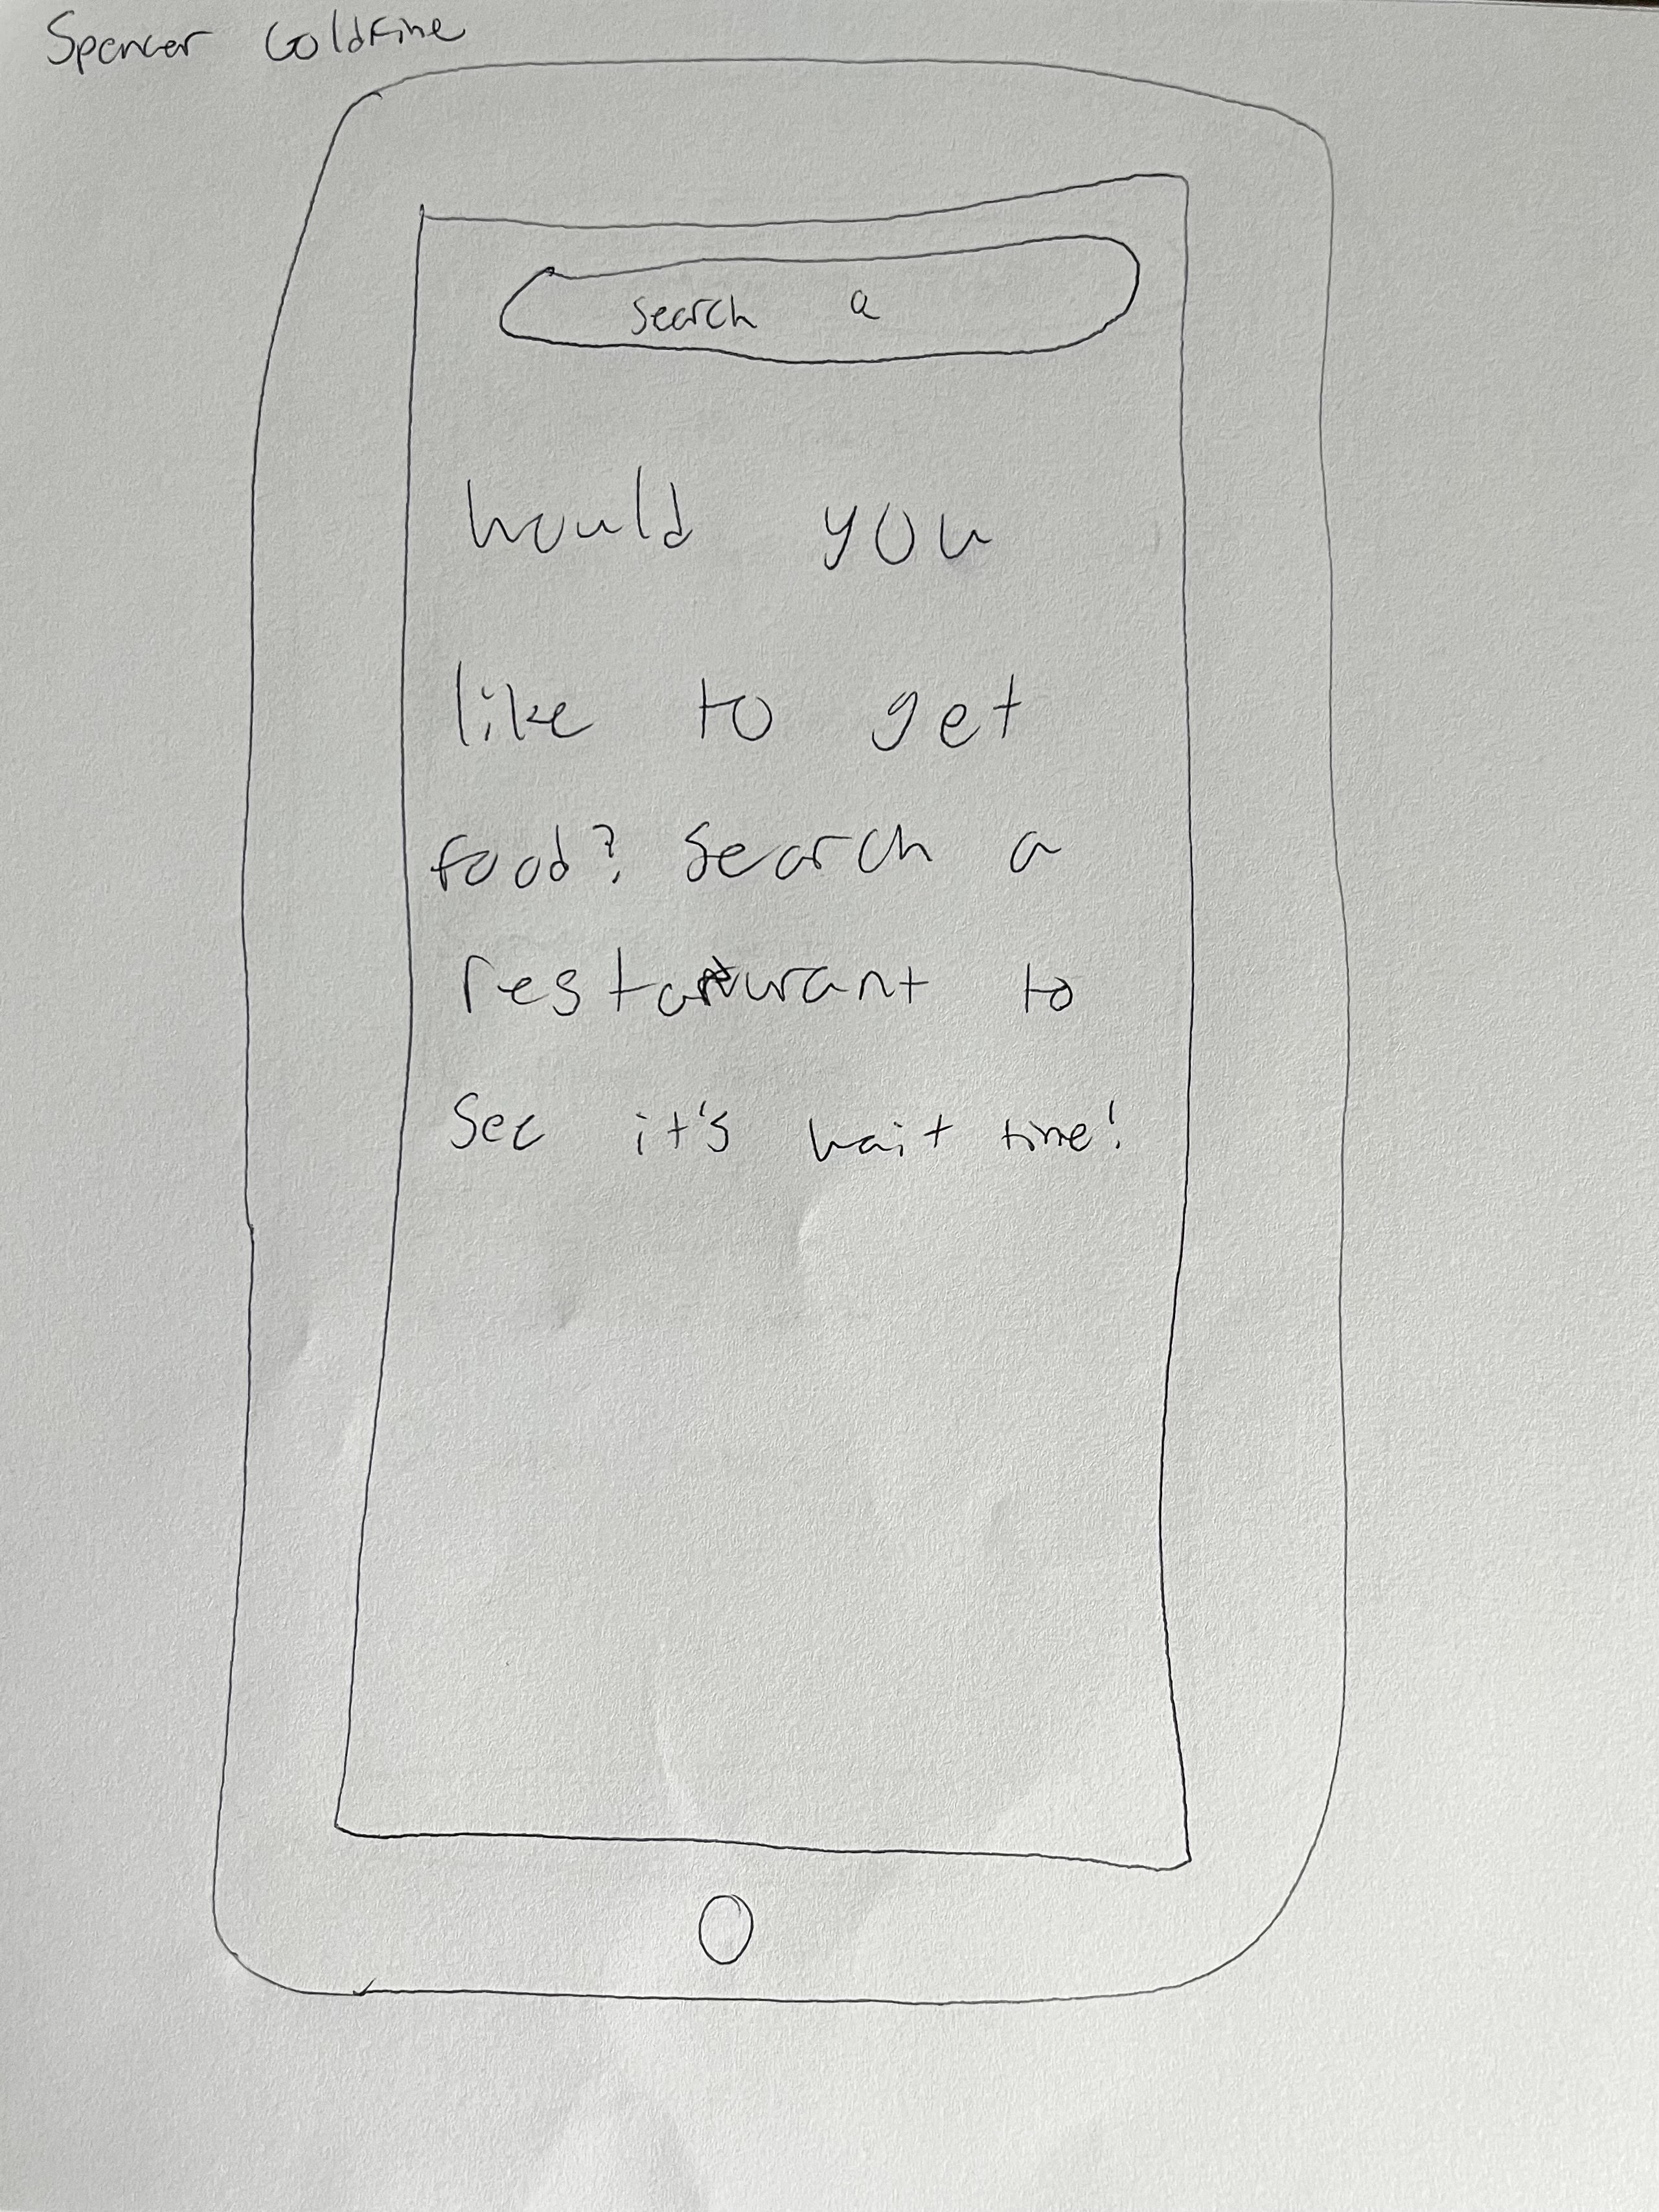 Spencer Goldfine
Search a
would you
like to get
food? Search a
restaurant to
See it's wait time!